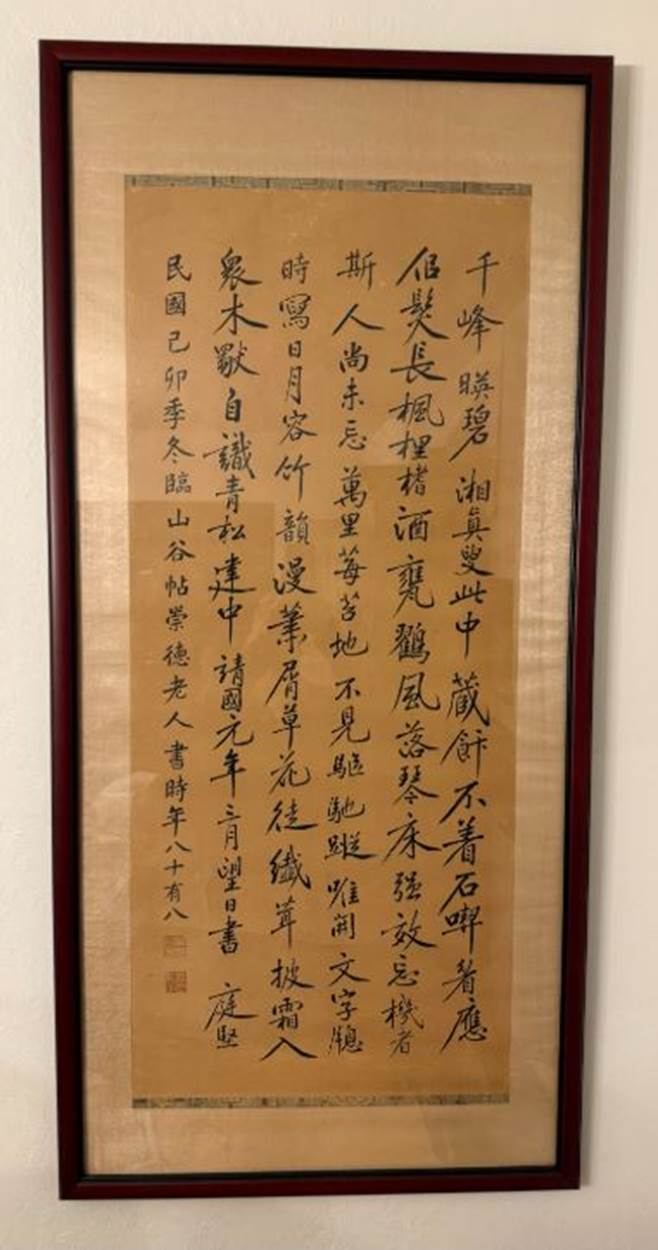 千峰暎碧湘真叟此中藏餅不着石喫着應
侶髮長楓桎楮酒甕鸛風落琴床强效忘機者
斯人尚未忘萬里莓苔地不見驅馳蹤唯開文字牕
時寫日月容竹韻漫蕭屑草花徒纖茸披霜入
衆木獸自識青松建中請國元年三月望日書 庭堅
民國己卯季冬臨山谷帖崇德老人書時年八十有八